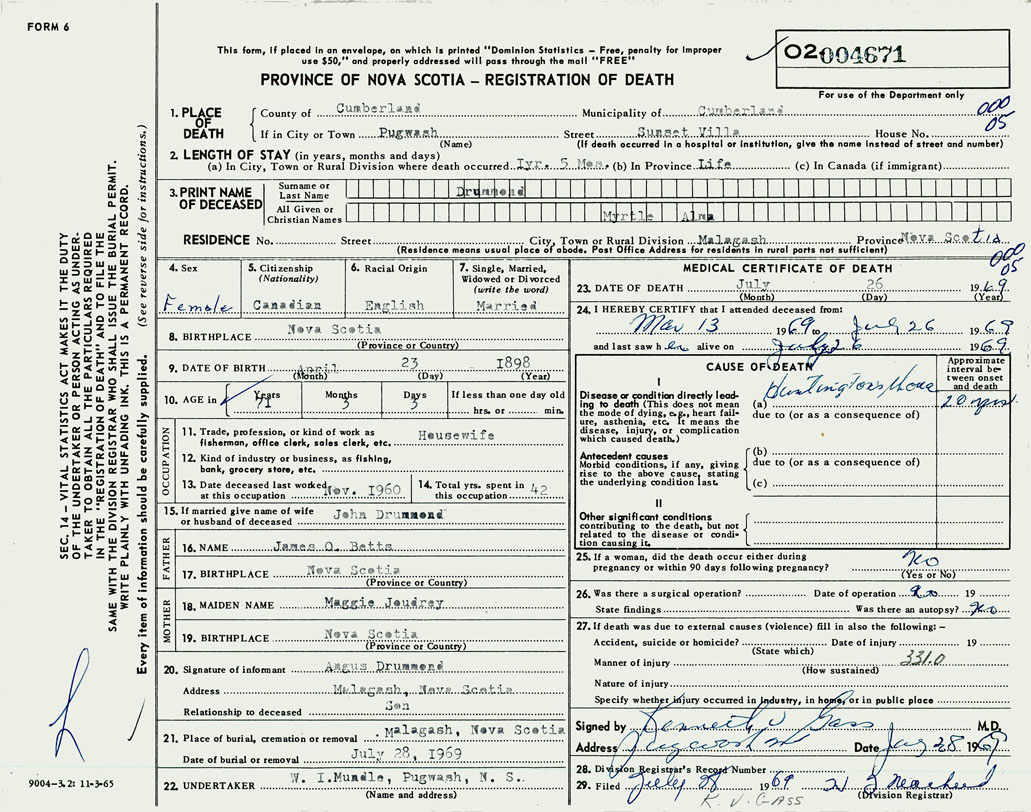 FORM 6
This form, if placed in an envelope, on which is printed "Dominion Statistics – Free, penalty for improper
use $50," and properly addressed will pass through the mail "FREE"
PROVINCE OF NOVA SCOTIA – REGISTRATION OF DEATH
02 004671
For use of the Department only
000
05
1. PLACE OF DEATH
County of Cumberland Municipality of Cumberland
If in City or Town Pugwash Street Sunset Villa House No.
(Name) (If death occurred in a hospital or institution, give the name instead of street and number)
2. LENGTH OF STAY (in years, months and days)
(a) In City, Town or Rural Division where death occurred 1yr. 5 Mos. (b) In Province Life (c) In Canada (if immigrant)
3. PRINT NAME OF DECEASED
Surname or Last Name Drummond
All Given or Christian Names Myrtle Alma
RESIDENCE No. Street City, Town or Rural Division Malagash Province Nova Scotia
(Residence means usual place of abode. Post Office Address for residents in rural parts not sufficient)
000
05
4. Sex
Female
5. Citizenship
(Nationality)
Canadian
6. Racial Origin
English
7. Single, Married,
Widowed or Divorced
(write the word)
Married
8. BIRTHPLACE Nova Scotia
(Province or Country)
9. DATE OF BIRTH April 23 1898
(Month) (Day) (Year)
10. AGE in Years Months Days If less than one day old
71 3 3 hrs. or min.
OCCUPATION
11. Trade, profession, or kind of work as
fisherman, office clerk, sales clerk, etc. Housewife
12. Kind of industry or business, as fishing,
bank, grocery store, etc.
13. Date deceased last worked
at this occupation Nov. 1960
14. Total yrs. spent in
this occupation 42
15. If married give name of wife
or husband of deceased John Drummond
FATHER
16. NAME James O. Betts
17. BIRTHPLACE Nova Scotia
(Province or Country)
MOTHER
18. MAIDEN NAME Maggie Joudrey
19. BIRTHPLACE Nova Scotia
(Province or Country)
20. Signature of informant Angus Drummond
Address Malagash, Nova Scotia
Relationship to deceased Son
21. Place of burial, cremation or removal Malagash, Nova Scotia
Date of burial or removal July 28, 1969
22. UNDERTAKER W. I. Mundle, Pugwash, N. S.
(Name and address)
MEDICAL CERTIFICATE OF DEATH
23. DATE OF DEATH July 26 1969
(Month) (Day) (Year)
24. I HEREBY CERTIFY that I attended deceased from:
Mar 13 1969 to July 26 1969
and last saw her alive on July 26 1969
CAUSE OF DEATH
Approximate
interval be-
tween onset
and death
I
Disease or condition directly lead-
ing to death (This does not mean
the mode of dying, e.g., heart fail-
ure, asthenia, etc. It means the
disease, injury, or complication
which caused death.)
(a) Huntingtons Chorea 20 years
due to (or as a consequence of)
Antecedent causes
Morbid conditions, if any, giving
rise to the above cause, stating
the underlying condition last.
(b)
due to (or as a consequence of)
(c)
II
Other significant conditions
contributing to the death, but not
related to the disease or condi-
tion causing it.
25. If a woman, did the death occur either during
pregnancy or within 90 days following pregnancy? No
(Yes or No)
26. Was there a surgical operation? Date of operation No 19
State findings Was there an autopsy? No
27. If death was due to external causes (violence) fill in also the following: –
Accident, suicide or homicide? Date of injury 19
(State which)
Manner of injury 331.0
(How sustained)
Nature of injury
Specify whether injury occurred in industry, in home, or in public place
Signed by Kenneth V Gass M.D.
Address Pugwash NS Date July 28 1969
28. Division Registrar's Record Number
29. Filed July 28 1969
(Division Registrar)
K. V. GASS
SEC. 14 – VITAL STATISTICS ACT MAKES IT THE DUTY
OF THE UNDERTAKER OR PERSON ACTING AS UNDER-
TAKER TO OBTAIN ALL THE PARTICULARS REQUIRED
IN THE "REGISTRATION OF DEATH" AND TO FILE THE
SAME WITH THE DIVISION REGISTRAR WHO SHALL ISSUE THE BURIAL PERMIT.
WRITE PLAINLY WITH UNFADING INK. THIS IS A PERMANENT RECORD.
Every item of information should be carefully supplied. (See reverse side for instructions.)
9004-3.2: 11-3-65